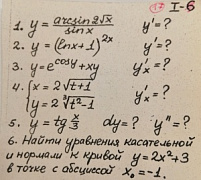 (17) I-6
1. y = arcsin2√x / sinx y' = ?
2. y = (lnx+1)^2x y' = ?
3. y = e^cosy + xy y'ₓ = ?
4. { x = 2√t+1 y'ₓ = ?
y = 2∛t²-1
5. y = tg x/3 dy = ? y'' = ?
6. Найти уравнения касательной
и нормали к кривой y = 2x²+3
в точке с абсциссой x₀ = -1.